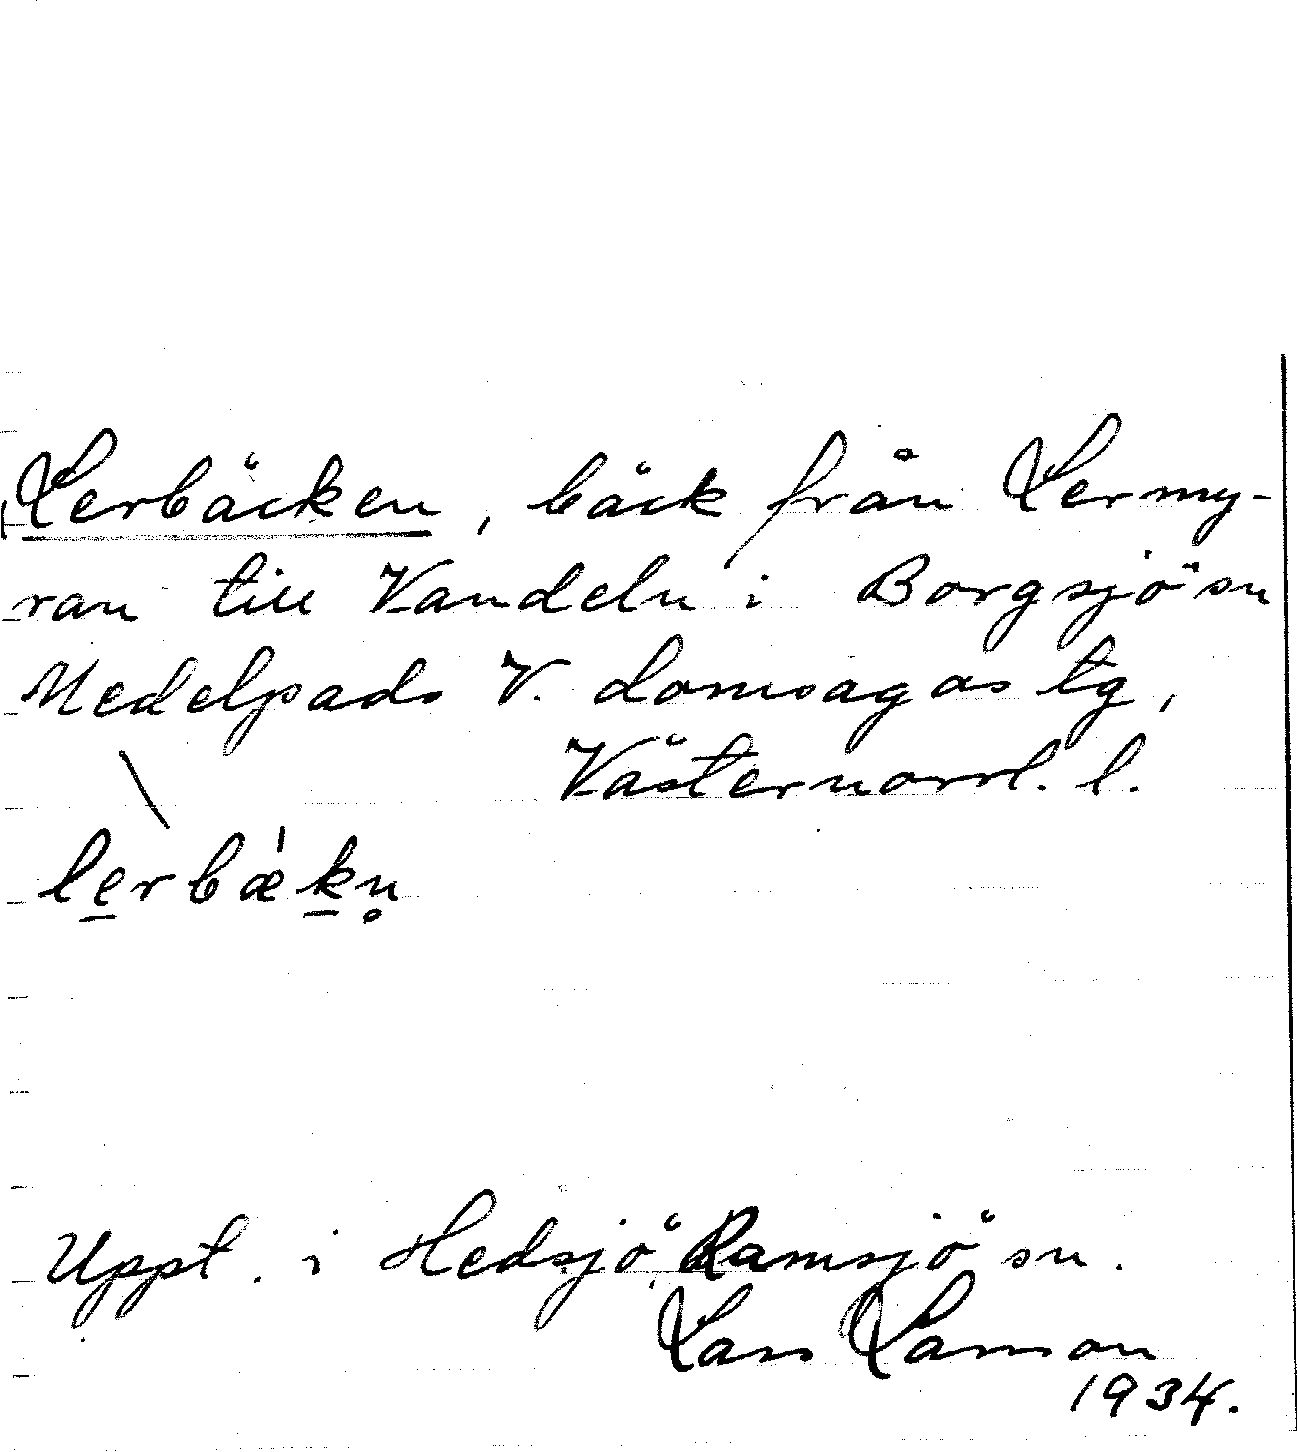 Lerbäcken, bäck från Lermy-
ran till Vandeln i Borgsjö sn
Medelpads V. domsagas tg,
Västernorrl. l.
le̠rbǽk̠n̥
Uppt. i Hedsjö, Ramsjö sn.
Lars Larsson
1934.